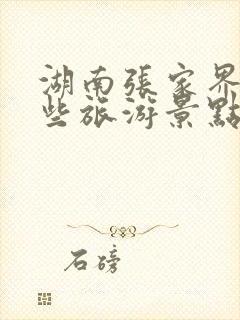 湖南張家界
些旅游景點
石磅